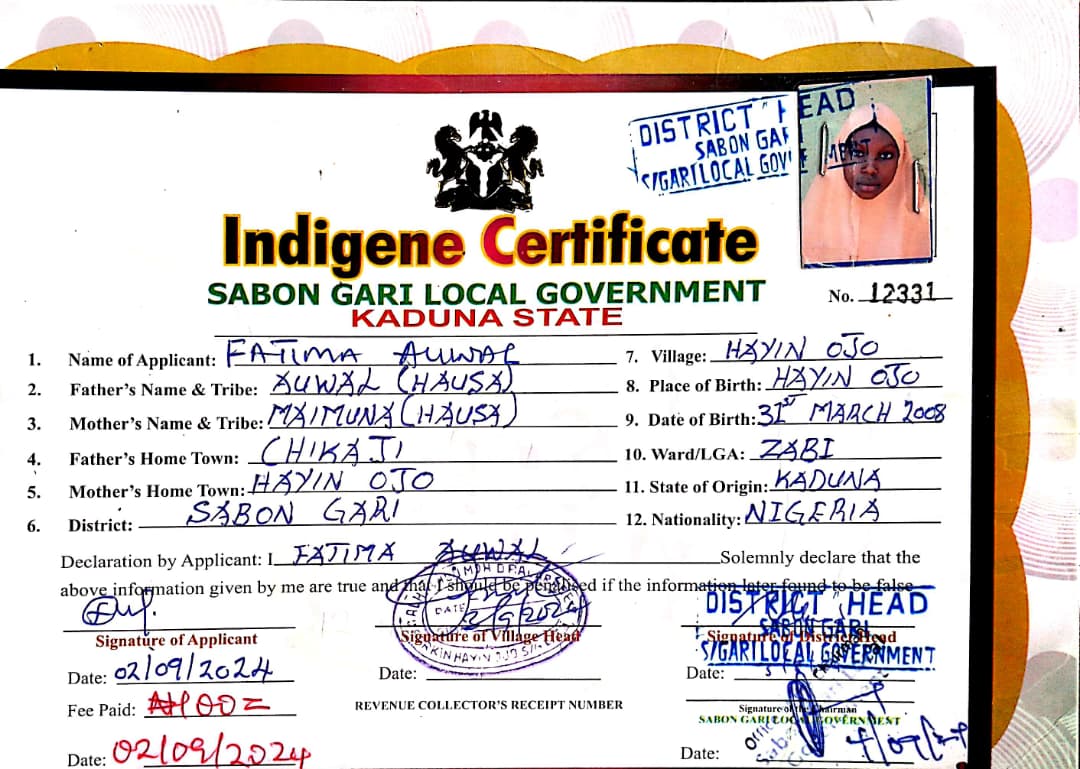 DISTRICT HEAD
SABON GAR
S/GARI LOCAL GOV MENT
Indigene Certificate
SABON GARI LOCAL GOVERNMENT
No. 12331
KADUNA STATE
1. Name of Applicant: FATIMA AUWAL
7. Village: HAYIN OJO
2. Father's Name & Tribe: AUWAL (HAUSA)
8. Place of Birth: HAYIN OJO
3. Mother's Name & Tribe: MAIMUNA (HAUSA)
9. Date of Birth: 31ST MARCH 2008
4. Father's Home Town: CHIKAJI
10. Ward/LGA: ZABI
5. Mother's Home Town: HAYIN OJO
11. State of Origin: KADUNA
6. District: SABON GARI
12. Nationality: NIGERIA
Declaration by Applicant: I FATIMA AUWAL Solemnly declare that the
above information given by me are true and that I should be penalised if the information later found to be false
DATE
2/9/2024
DISTRICT HEAD
SABON GARI
S/GARI LOCAL GOVERNMENT
Signature of Applicant
Signature of Village Head
Signature of District Head
Date: 02/09/2024
Date:
Date:
Fee Paid: ₦100=
REVENUE COLLECTOR'S RECEIPT NUMBER
Signature of the Chairman
SABON GARI LOCAL GOVERNMENT
Date: 02/09/2024
Date: